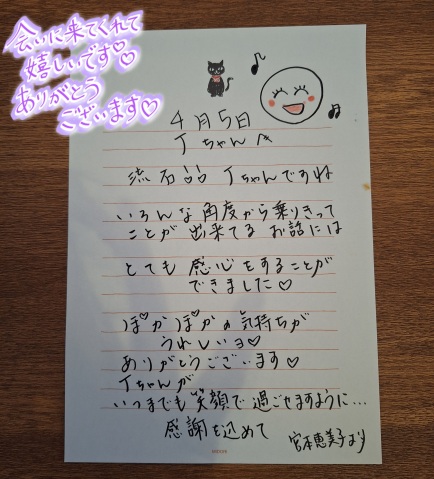 会いに来てくれて
嬉しいです♡
ありがとう
ございます♡
4月5日
Jちゃんへ
流石!! Jちゃんですね
いろんな角度から乗りきって
ことが出来てる お話には
とても 感心をすることが
できました♡
ぽかぽかの気持ちが
うれしいョ♡
ありがとうございます♡
Jちゃんが
いつまでも笑顔で過ごせますように…
感謝を込めて
宮本恵美子より